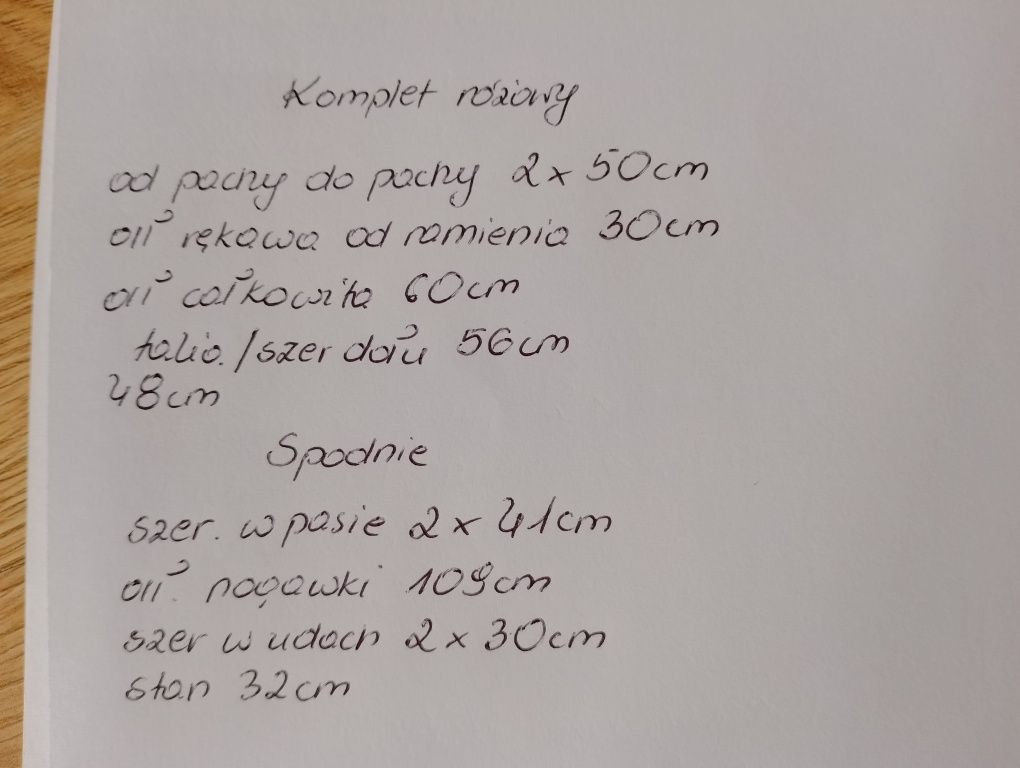 Komplet różowy
od pachy do pachy 2 x 50cm
dł rękawa od ramienia 30cm
dł całkowita 60cm
talia /szer dołu 56cm
48cm
Spodnie
szer. w pasie 2 x 41cm
dł. nogawki 109cm
szer w udach 2 x 30cm
stan 32cm